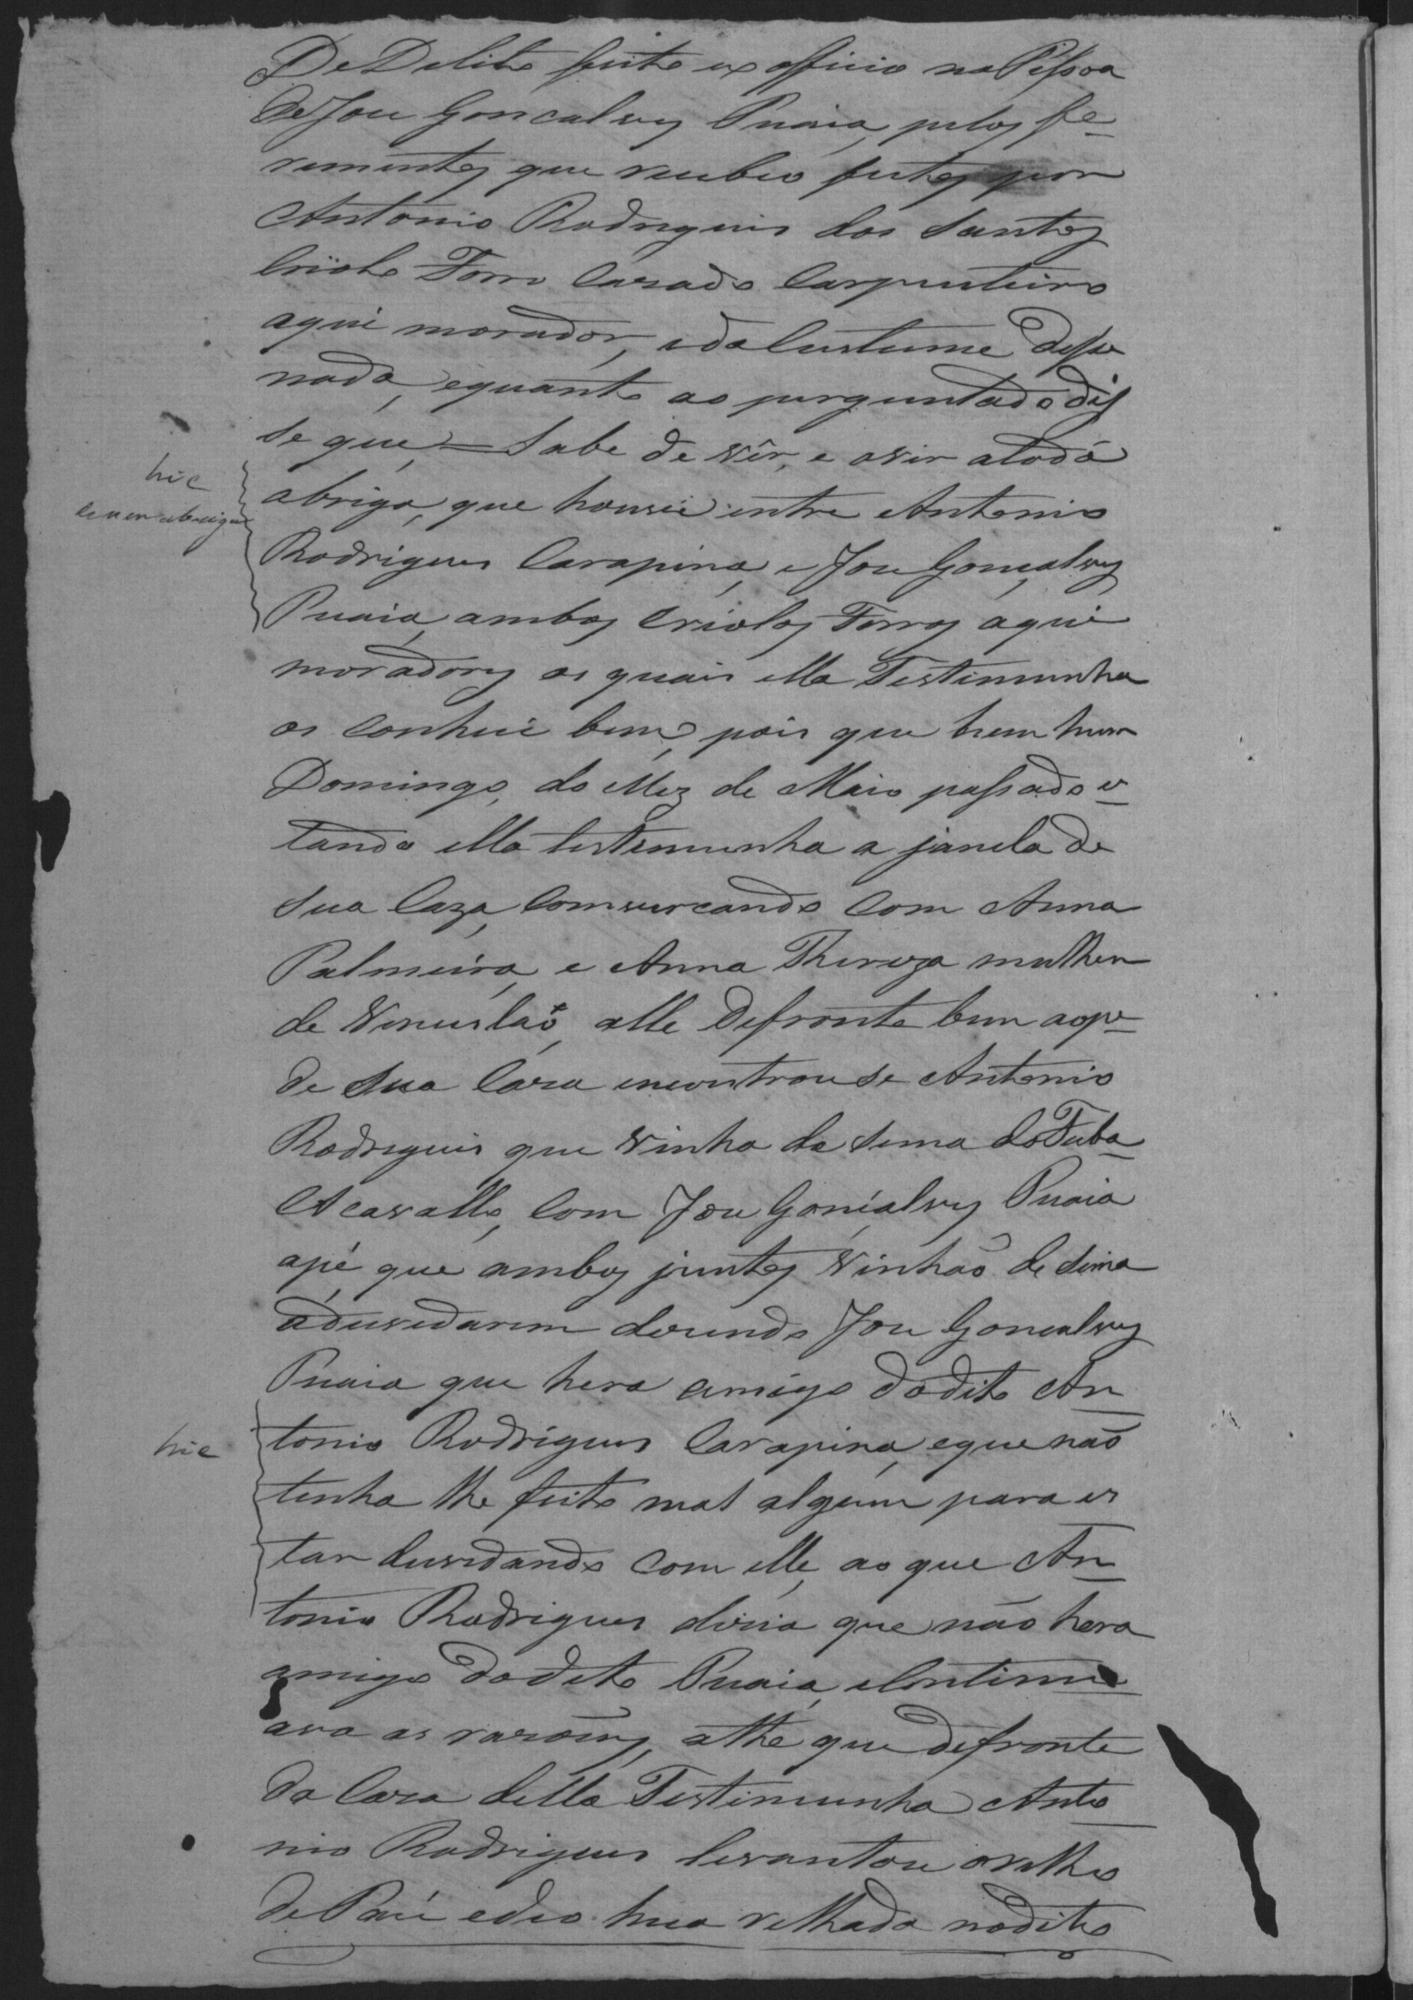 De Delito feito ex officio na Pessoa
de Jose Goncalvez Puaia, pelos fe-
rimentos que recebeo feitos por
Antonio Rodrigues dos Santos
Criolo Forro Casado Carpinteiro
aqui morador, e do Custume disse
nada, e quanto ao perguntado dis
se que = Sabe de vêr, e ovir a toda
hic
a briga, que houve entre Antonio
Rodrigues Carapina, e Jose Gonçalvez
Puaia, ambos Criolos Forros aqui
moradores os quais ella Testemunha
os conhece bem, pois que hem hum
Domingo, do Mez de Maio passado es-
tando ella testemunha a janela de
sua Caza, comvercando com Anna
Palmeira, e Anna Thereza mulher
de Venceslaõ, alle defronte bem ao pe-
de sua Caza encontrou se Antonio
Rodrigues que vinha de sima do Fuba-
A cavallo, com Jose Gonçalvez Puaia
a pé que ambos juntos vinhaõ de sima
a duvidarem dizendo Jose Goncalvez
Puaia que hera amigo do dito An-
hic
tonio Rodrigues Carapina, e que naõ
tenha lhe feito mal algum para es
tar duvidando com elle, ao que An-
tonio Rodrigues dizia que não hera
amigo do dito Puaia, e Continu-
ava as razoens, athe que defronte
da Caza della Testemunha Anto-
nio Rodrigues levantou o relho
de Páu e deo hua relhada no dito